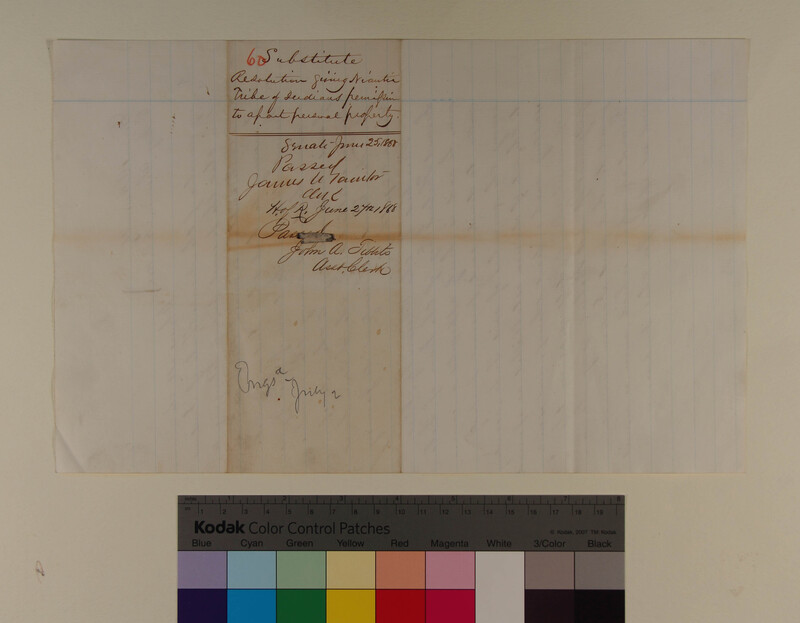 60 Substitute
Resolution giving Niantic
Tribe of Indians permission
to apart personal property.
Senate June 25, 1868
Passed
James U Taintor
Clk
H. of R. June 27th, 1868
Passed
John A. Tibbits
Asst. Clerk
Engsd July 2
Kodak Color Control Patches
© Kodak, 2007 TM: Kodak
Blue Cyan Green Yellow Red Magenta White 3/Color Black